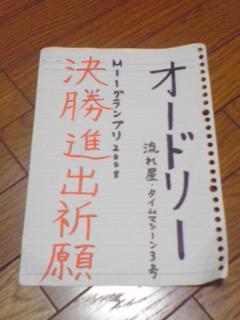 オードリー
流れ星・タイムマシーン3号
M-1グランプリ2008
決勝進出祈願